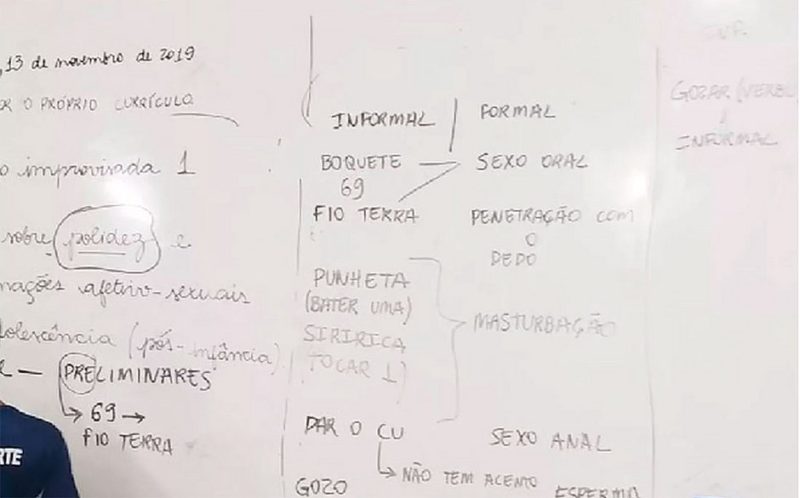 13 de novembro de 2019
O PRÓPRIO CURRÍCULO
improvisada 1
sobre polidez e
afetivo-sexuais
(pós-infância)
PRELIMINARES
69
FIO TERRA
RTE
INFORMAL
FORMAL
BOQUETE
SEXO ORAL
69
FIO TERRA
PENETRAÇÃO COM
O
DEDO
PUNHETA
(BATER UMA)
SIRIRICA
TOCAR 1)
MASTURBAÇÃO
DAR O CU
SEXO ANAL
NÃO TEM ACENTO
GOZO
ESPERMA
GOZAR (VERBO
INFORMAL